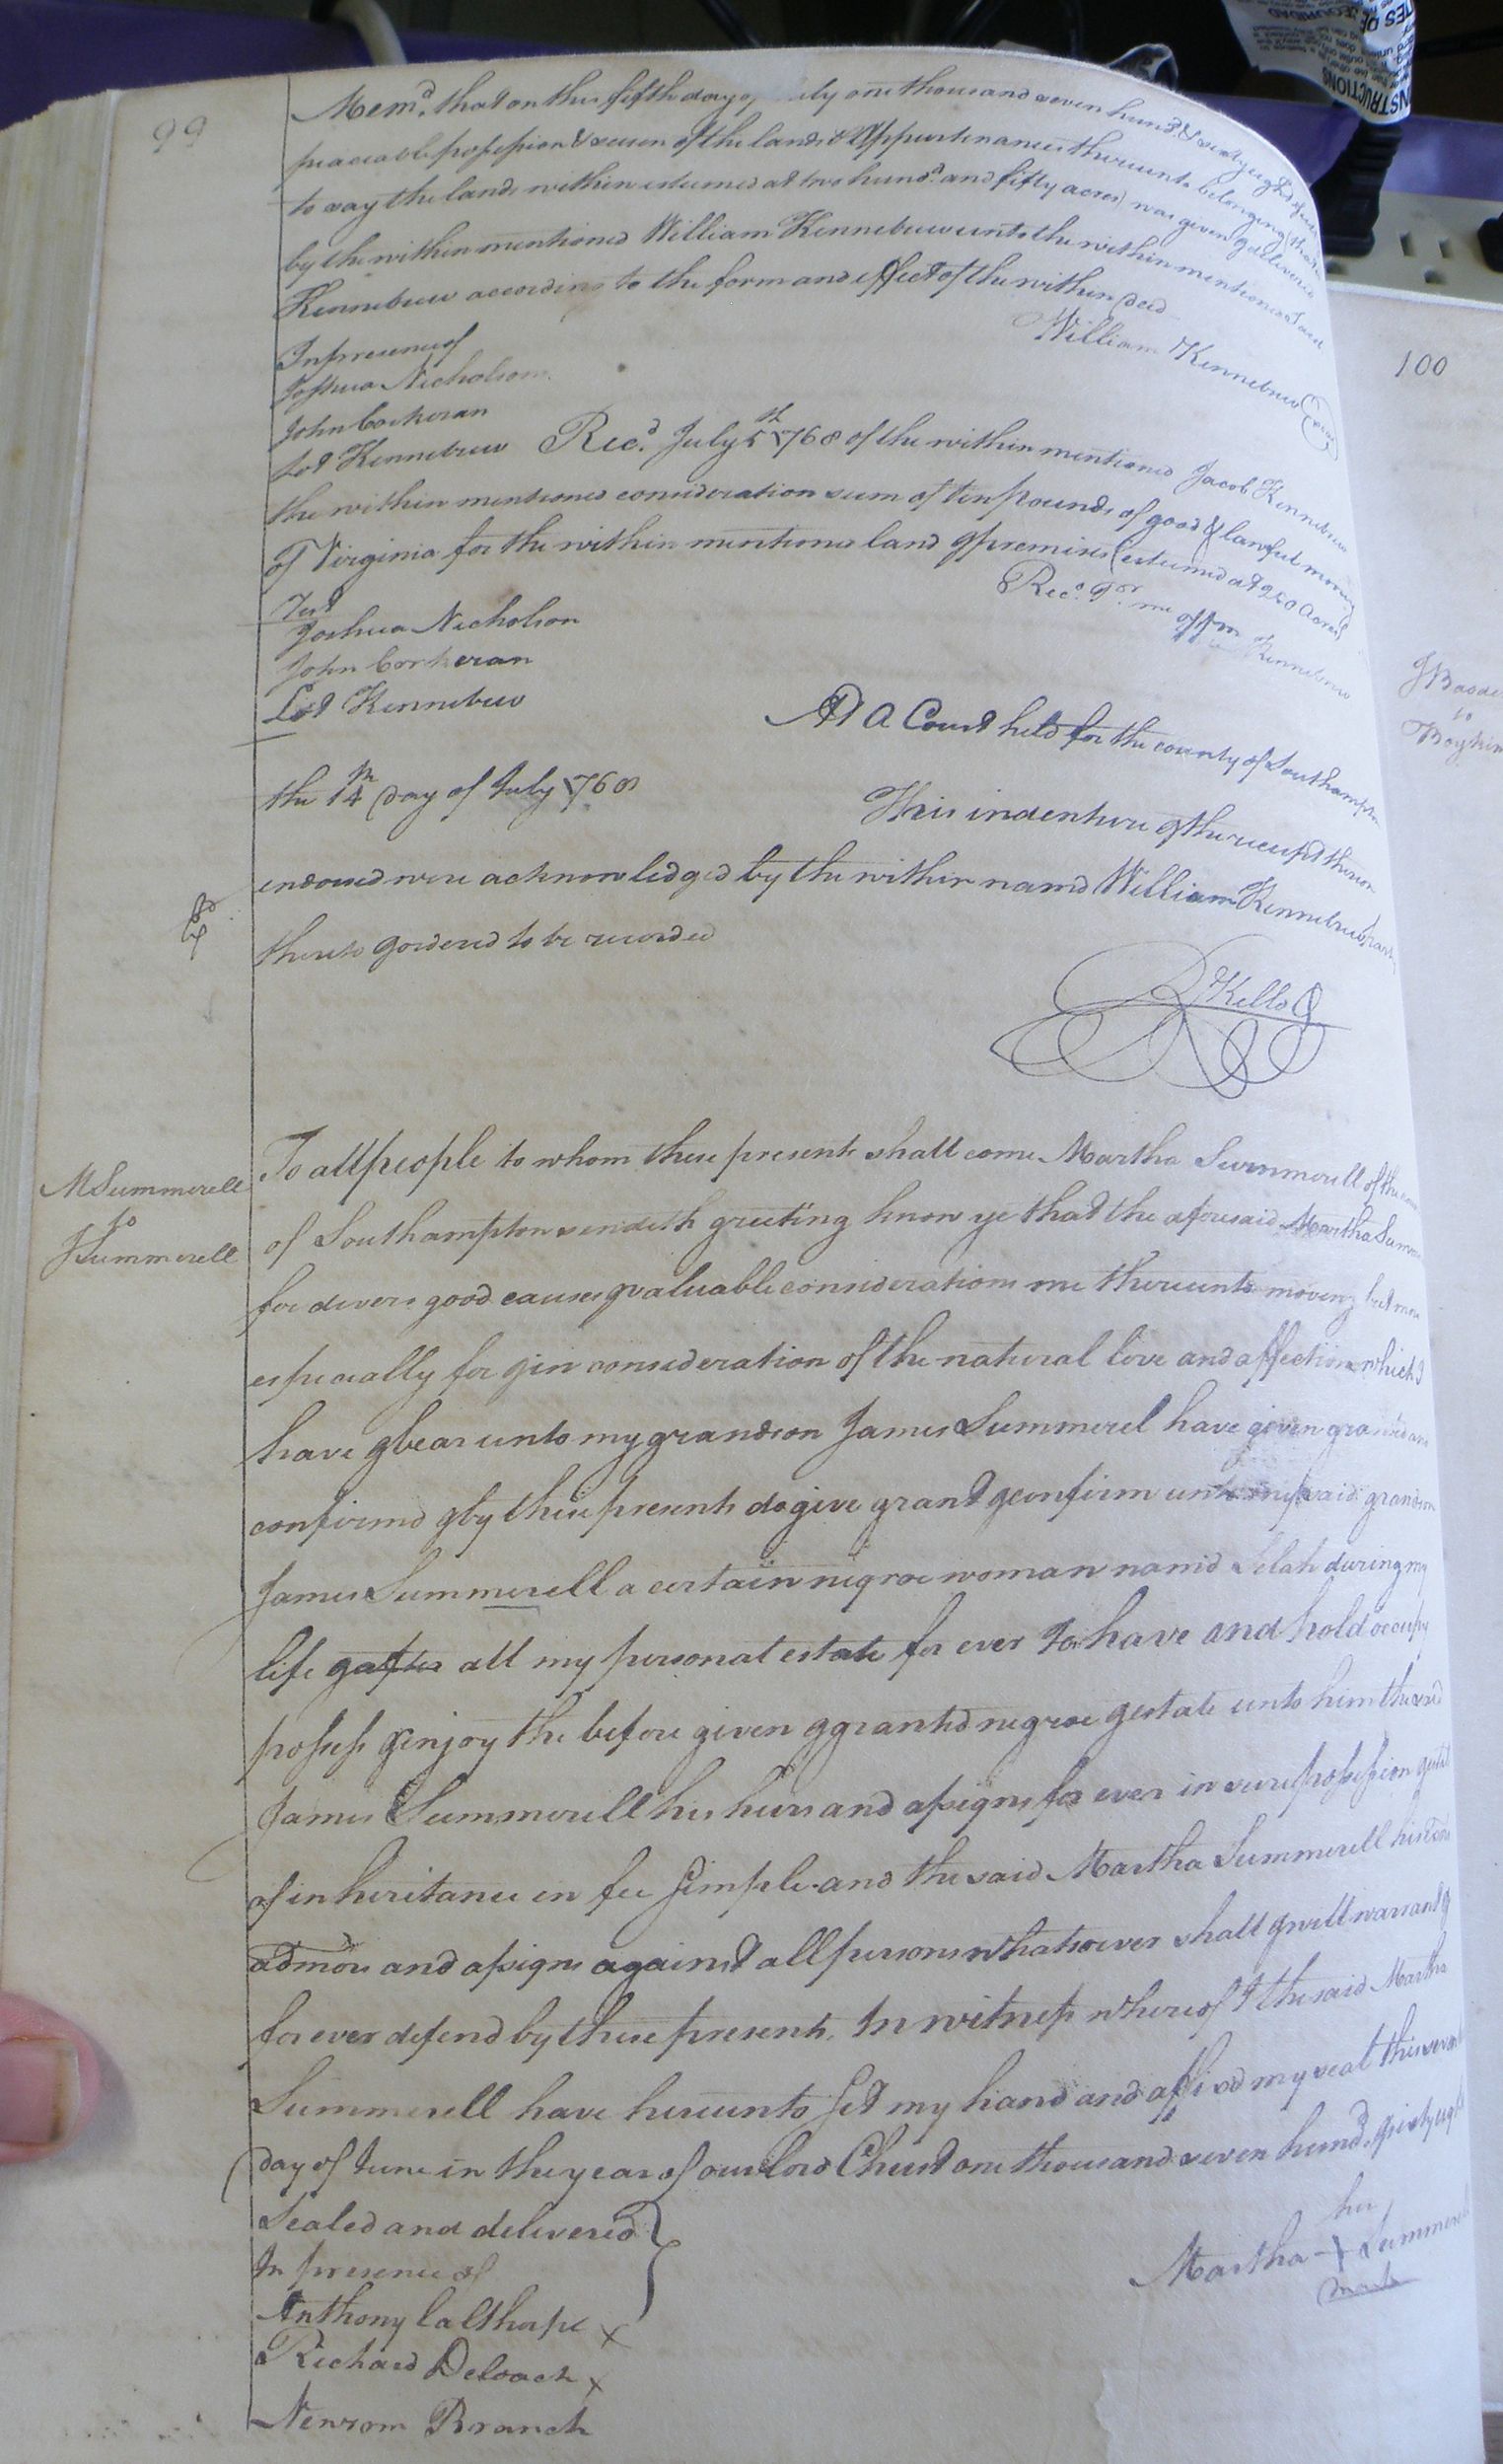 99
Memd. that on the fifth day of ly one thousand seven hund. & sixty eight
peaceable possession & seisen of the lands & Appurtenances thereunto belonging
to say the lands within estemed at two hund. and fifty acres) was given & delivered
by the within mentioned William Kennebrew unto the within mentioned
Kennebrew according to the form and effect of the within deed
William Kennebrew
In presence of
Joshua Nicholson
John Corkeran
Lot Kennebrew Recd. July 5th 1768 of the within mentioned Jacob Kennebrew
the within mentioned consideration sum of ten pounds of good & lawful money
of Virginia for the within mentioned land & premises (estemed at 250 acres)
Recd. pr. me
Kennebrew
Test
Joshua Nicholson
John Corkeran
Lot Kennebrew
At a Court held for the county of Southampton
the 14th day of July 1768
This indenture & the receipt thereon
endorsed were acknowledged by the within named William Kennebrew party
thereto & ordered to be recorded
R Kello
M Summerell
to
J Summerell
To all people to whom these presents shall come Martha Summerell of the
of Southampton sendeth greeting know ye that the aforesaid Martha Summ
for divers good causes & valuable considerations me thereunto moving but more
especially for & in consideration of the natural love and affection which I
have & bear unto my grandson James Summerel have given granted and
confirmd & by these presents do give grant & confirm unto my said grandson
James Summerell a certain negroe woman namd Selah during my
life & after all my personal estate for ever To have and hold occupy
possess & enjoy the before given & granted negroe & estate unto him the said
James Summerell his heirs and assigns for ever in sure possession &
of inheritance in fee simple and the said Martha Summerell his
admors and assigns against all persons whatsoever shall & will warrant &
for ever defend by these presents. In witness whereof I the said Martha
Summerell have hereunto set my hand and affixd my seal this
day of June in the year of our lord Christ one thousand seven hund. & sixty eight
Sealed and delivered
In presence of
Anthony Calthorpe x
Richard Deloach x
Newsom Branch
her
Martha + Summerell
mark
100
to